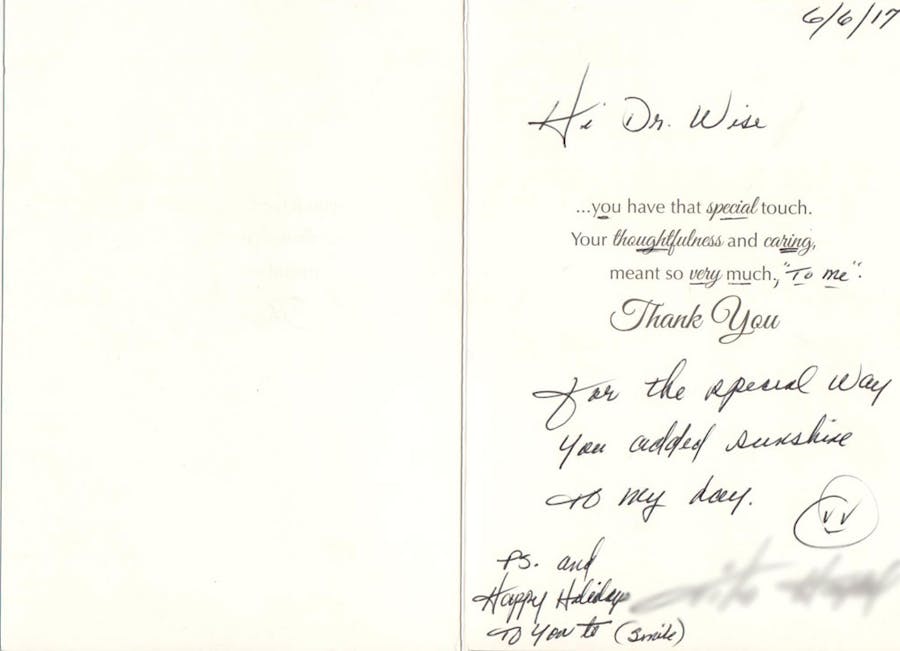 6/6/17
Hi Dr. Wise
...you have that special touch.
Your thoughtfulness and caring,
meant so very much., "To me".
Thank You
for the special way
you added sunshine
to my day.
PS. and
Happy Holidays
to you to (smile)